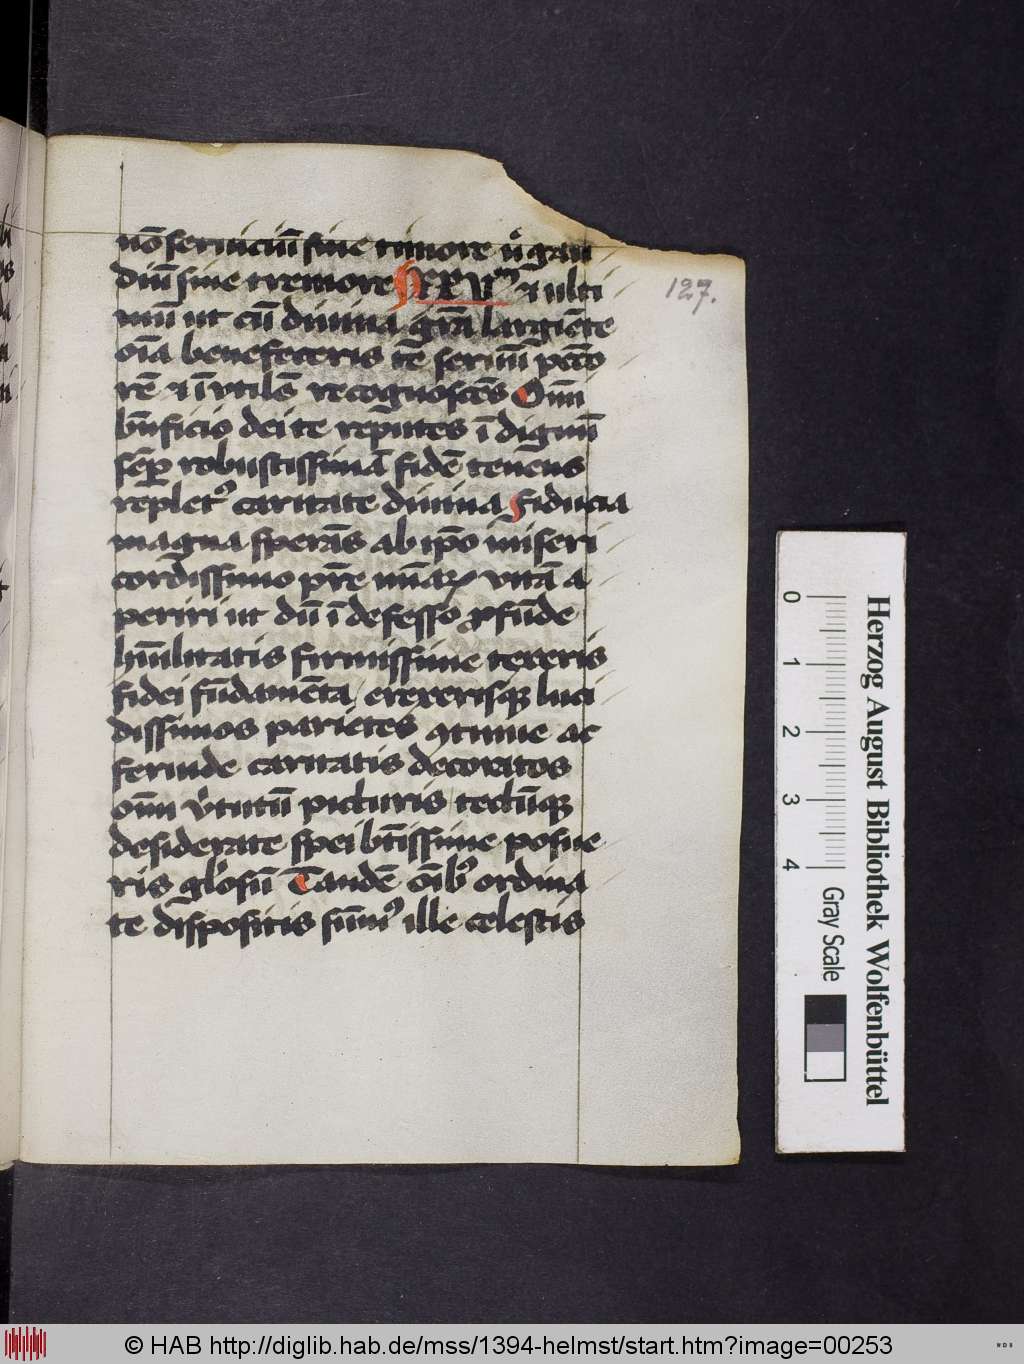 nō seruiciū sine timore ɳ gau
diū sine tremore XXVᵐ ⁊ ulti
mū ut cū diuina grā largiēte
oīa benefeceris tē seruū pctō
rē ⁊ īutilē recognoscēs Oīm
bn̄ficio dei te reputes īdignū
sēp robustissimā fidē tenens
repletꝰ caritate diuina fiducia
magna sperās ab ip̄o miseri
cordissimo pr̄e nr̄aꝝ vitā a
periri ut dū īdefesso ꝓfūde
hūilitatis firmissime ieceris
fidei fūdamēta erexerisqꝫ luci
dissimos parietes ꝯtinue ac
feruide caritatis decoratos
oīm v̓tutū picturis tectūqꝫ
desiderate spei btīssime posue
ris gl̓osū Tandē oībꝰ ordina
te dispositis sūmꝰ ille celestis
127.
Herzog August Bibliothek Wolfenbüttel
0 1 2 3 4
Gray Scale
© HAB http://diglib.hab.de/mss/1394-helmst/start.htm?image=00253